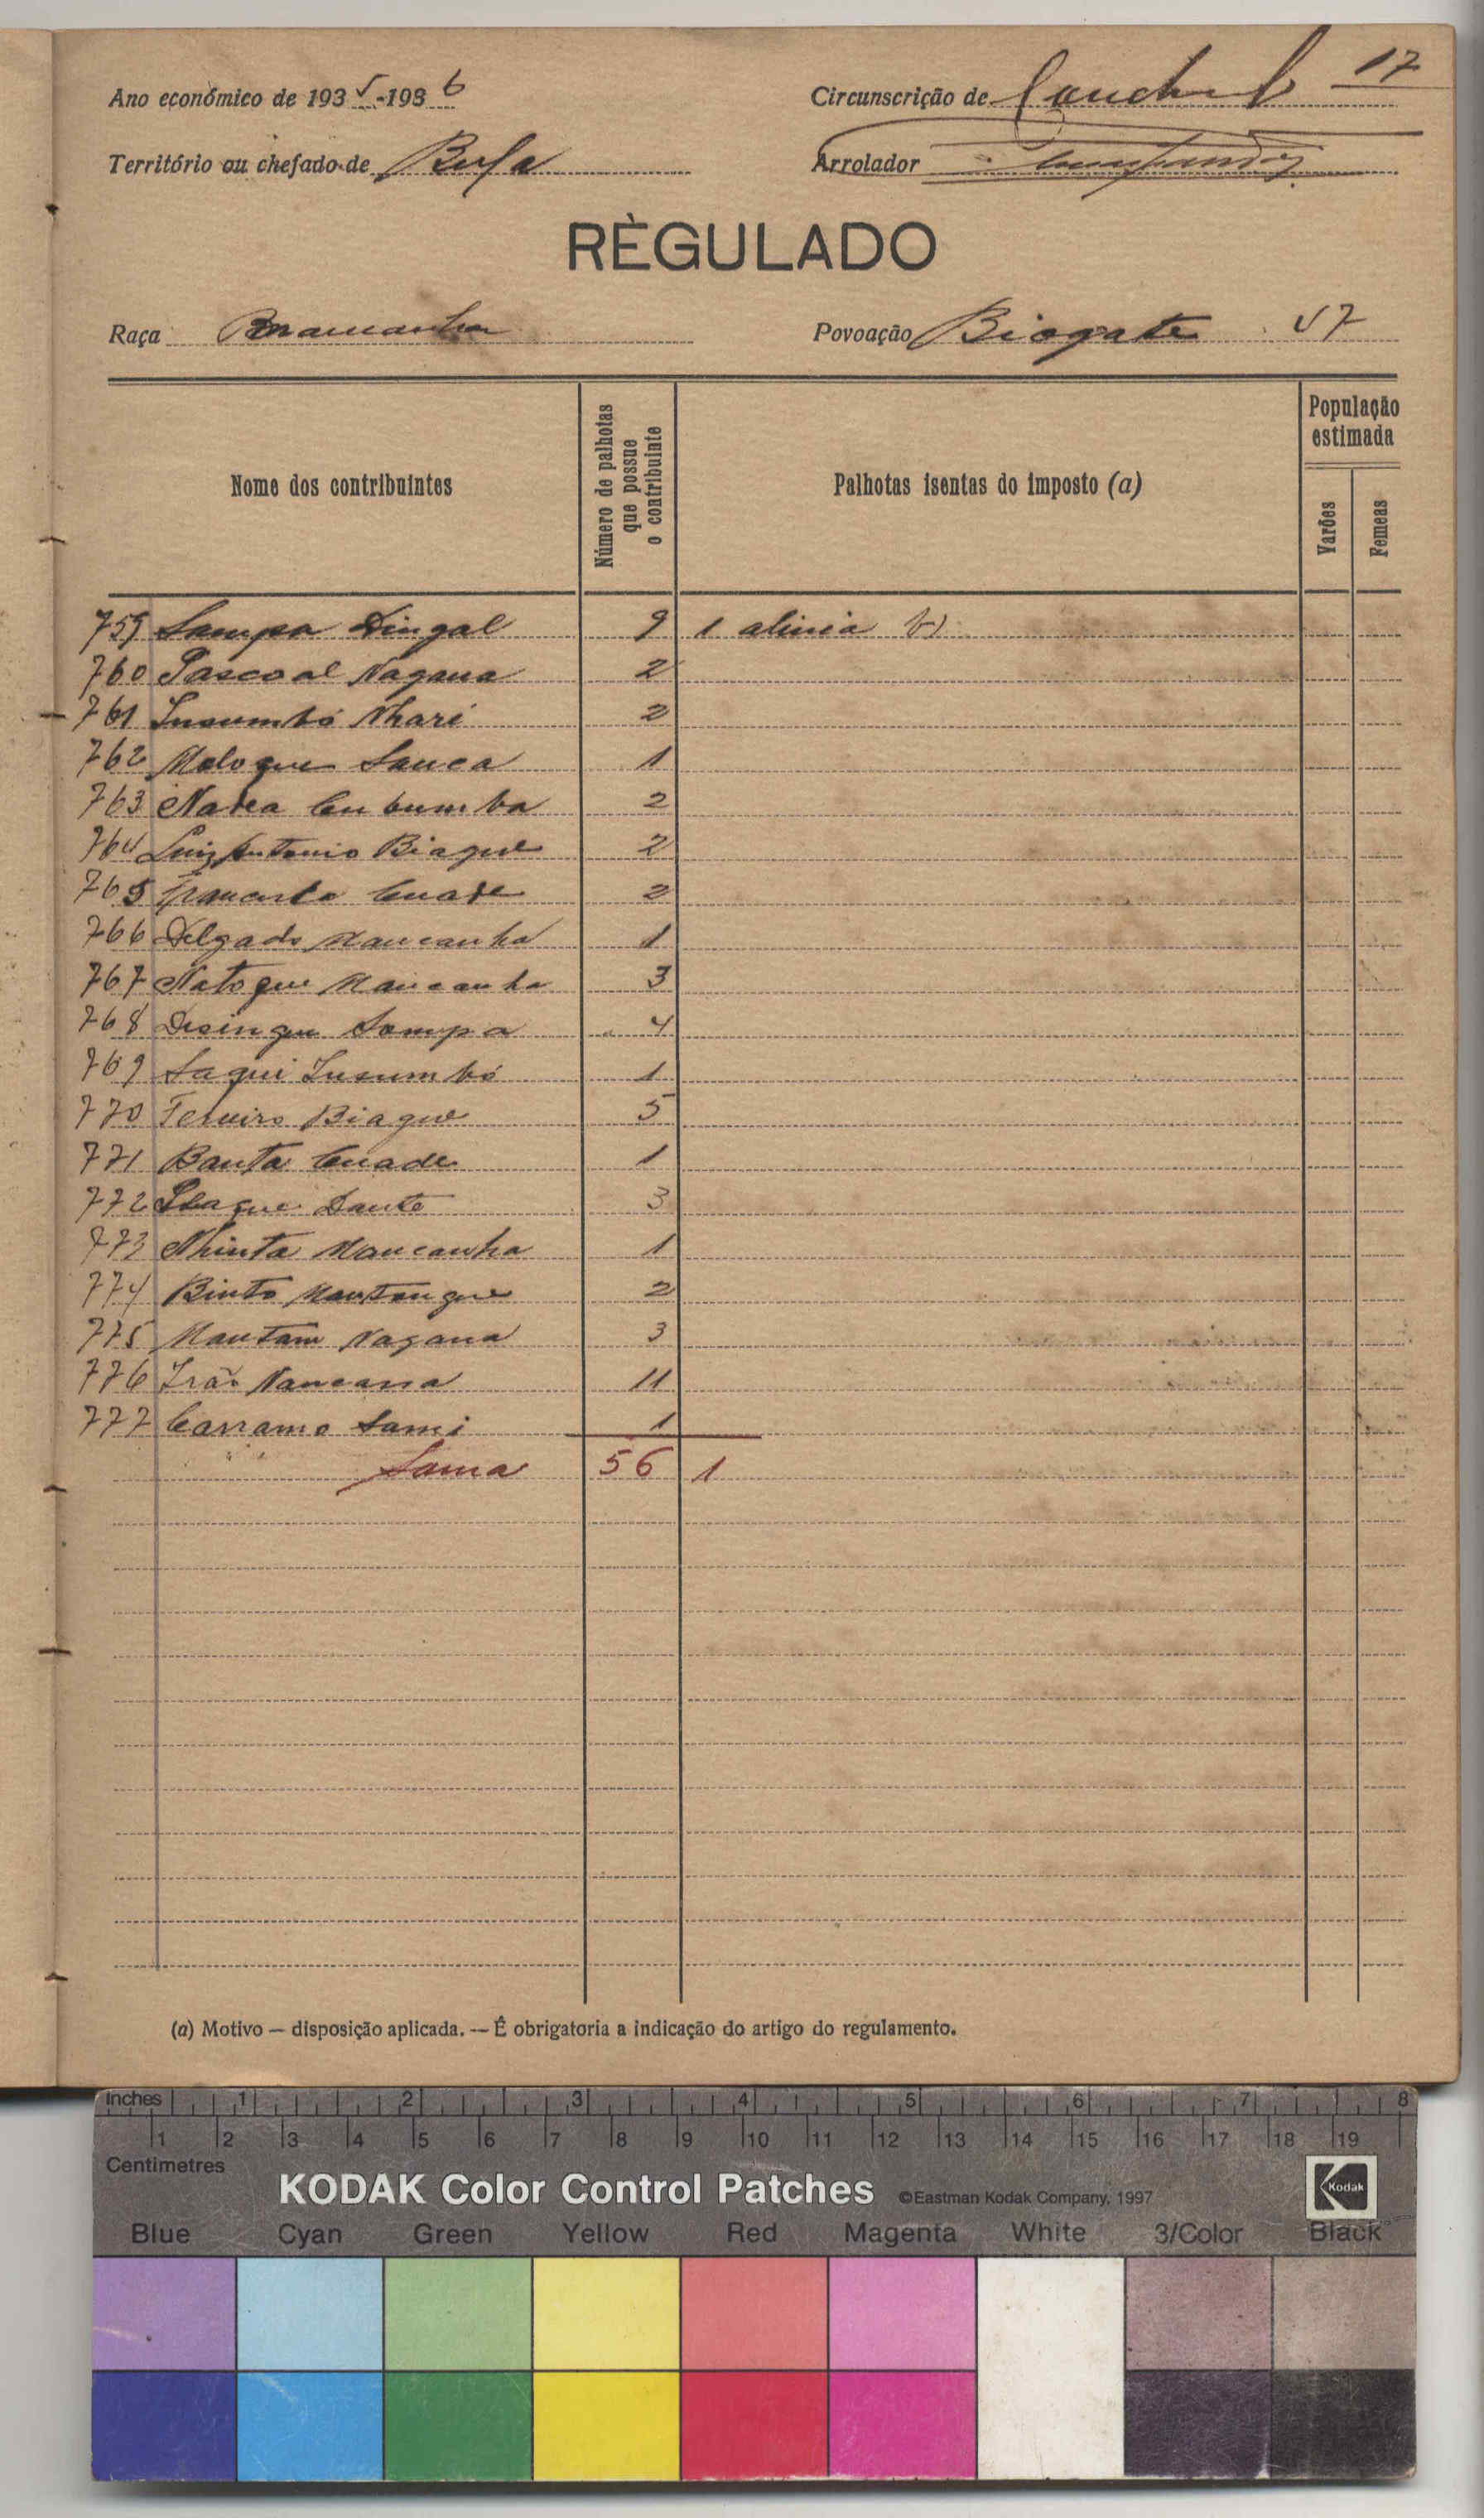 17
Ano económico de 1935-1936 Circunscrição de
Território ou chefado de Bula Arrolador
RÈGULADO
Raça Povoação Biogate 57
Nome dos contribuintes
Número de palhotas que possue o contribuinte
Palhotas isentas do imposto (a)
População estimada
Varões
Femeas
759 Sampa Dingal 9 1 alinia b)
760 Pascoal Nagana 2
761 Insumbó Nhari 2
762 Maloque Sanca 1
763 Natea 2
764 Luiz Antonio Biague 2
765 Cuade 2
766 Delgado Mancanha 1
767 Natoque Mancanha 3
768 Sampa 4
769 Saqui Insumbó 1
770 Biague 5
771 Banta Cuade 1
772 3
773 Nhinta Mancanha 1
774 Binto Mantangue 2
775 Mantam Nagana 3
776 Irão 11
777 Carramo Sami 1
Soma 56 1
(a) Motivo — disposição aplicada. — É obrigatoria a indicação do artigo do regulamento.
Inches 1 2 3 4 5 6 7 8
1 2 3 4 5 6 7 8 9 10 11 12 13 14 15 16 17 18 19
Centimetres
KODAK Color Control Patches ©Eastman Kodak Company, 1997 Kodak
Blue Cyan Green Yellow Red Magenta White 3/Color Black